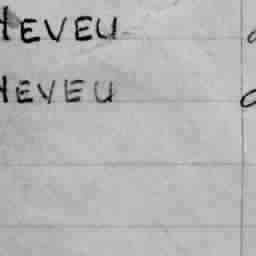 HEVEU
HEVEU